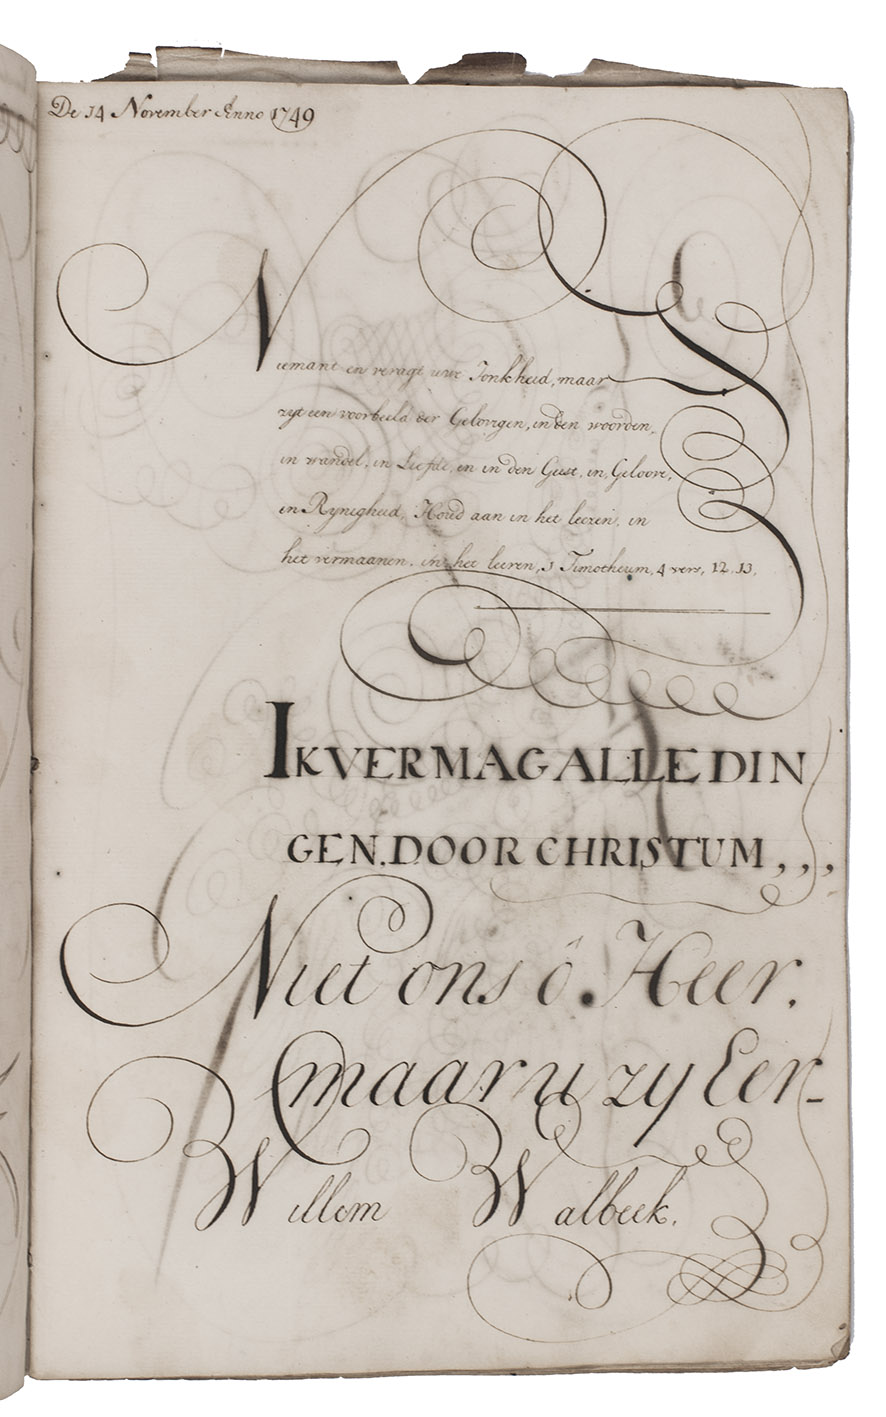 De 14 November Anno 1749
Niemant en veragt uwe Jonkheid, maar
zyt een voorbeeld der Gelovigen, in den woorden,
in wandel, in Liefde, en in den Geest, in, Geloove,
en Rynigheid, Houd aan in het leezen, in
het vermaanen, in het leeren, 1 Timotheum, 4 vers, 12, 13,
IK VERMAG ALLE DIN
GEN. DOOR CHRISTUM,,,
Niet ons ô. Heer,
maar u zy Eer-
Willem Walbeek.